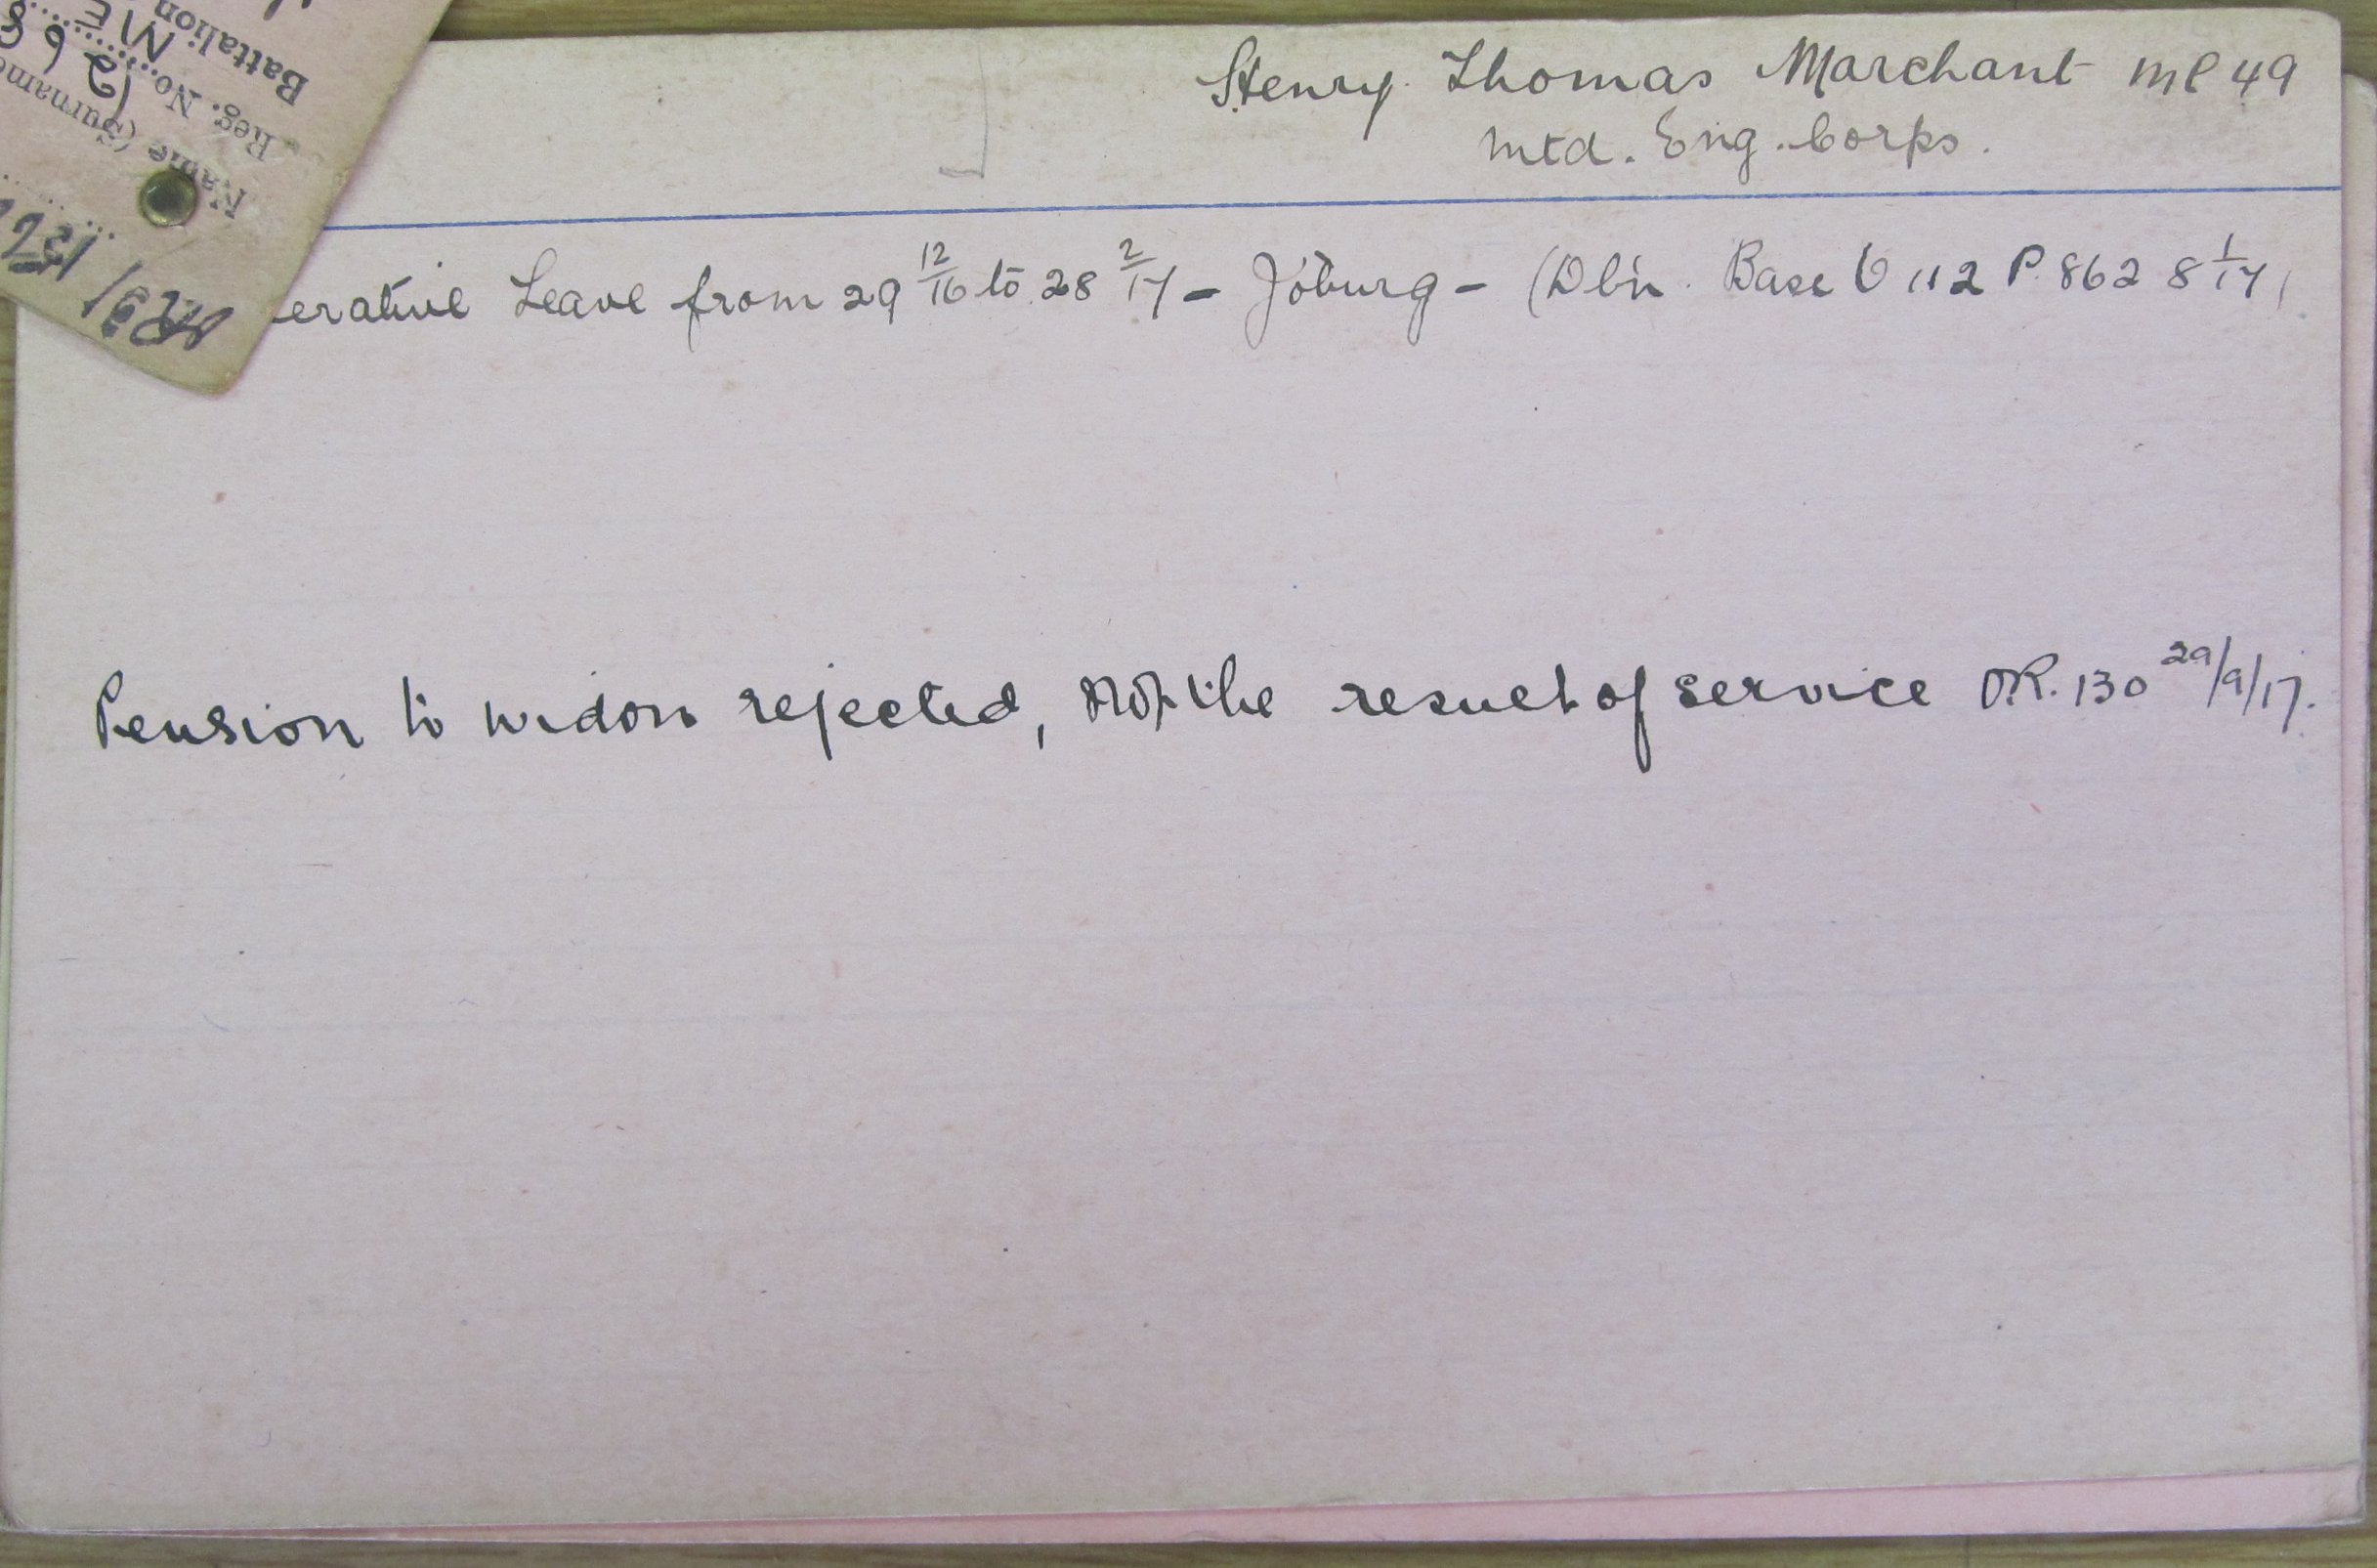 Henry Thomas Marchant ME 49
Mtd. Eng. Corps.
erative Leave from 29 12/16 to 28 2/17 - Jóburg - (Dbn. Base O 112 P. 862 8 1/17)
Pension to widow rejected, not the result of service OR. 130 29/9/17.
Battalion
Reg. No.
Name (Surname